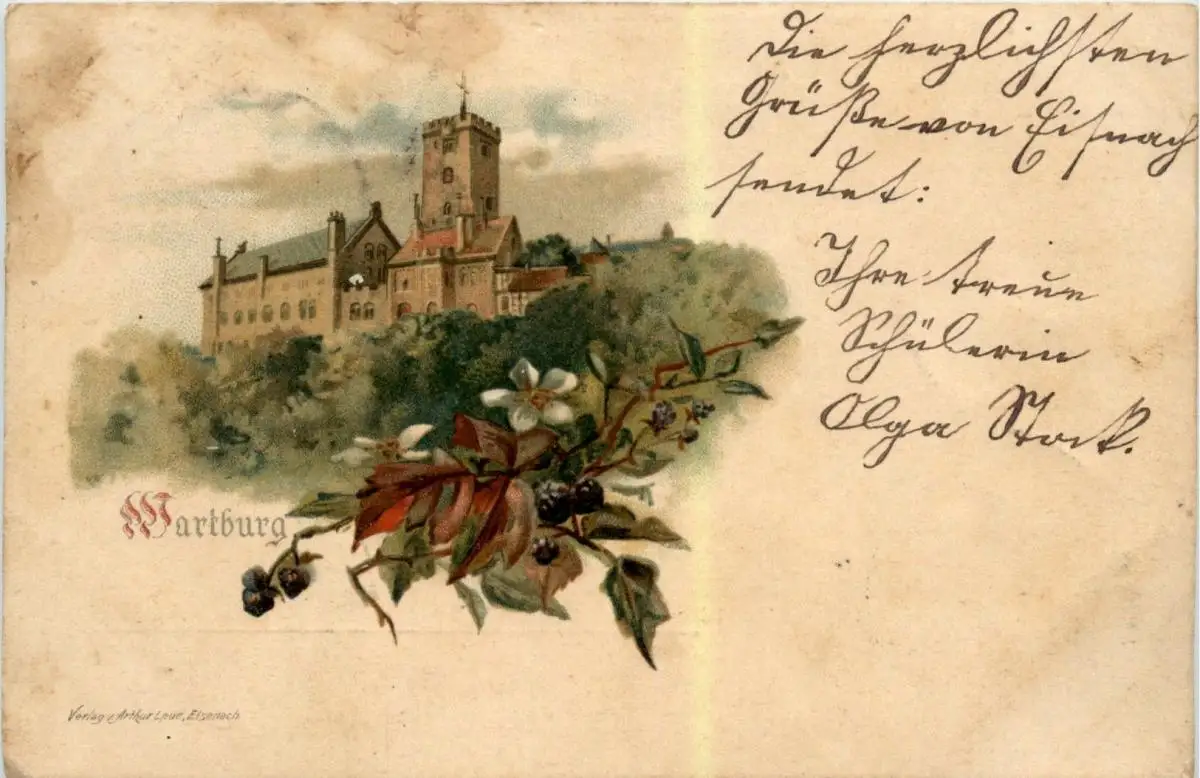 Die herzlichsten
Grüße von Eisnach
sendet:
Ihre treue
Schülerin
Olga Stock.
Wartburg
Verlag v. Arthur Loue, Eisenach